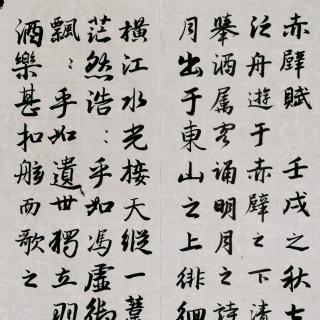 赤壁賦 壬戌之秋七
泛舟遊于赤壁之下清
舉酒属客誦明月之詩
月出于東山之上徘徊
橫江水光接天縱一葦
茫然浩〻乎如馮虛御
飄〻乎如遺世獨立羽
酒樂甚扣舷而歌之